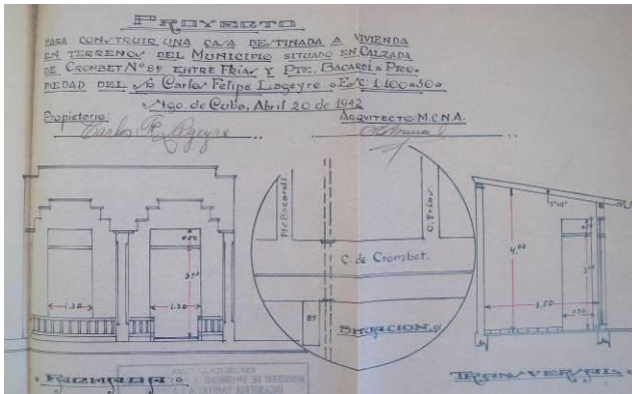 PROYECTO
PARA CONSTRUIR UNA CASA DESTINADA A VIVIENDA
EN TERRENOS DEL MUNICIPIO SITUADO EN CALZADA
DE CROMBET Nº 89 ENTRE FRÍAS Y PTE. BACARDI. PRO-
PIEDAD DEL Sr. Carlos Felipe Lageyre. Esc: 1:100-50.
Stgo. de Cuba, Abril 20 de 1942
Propietario: ARQUITECTO M.C.N.A.
Carlos F. Lageyre
Pte Bacardi
C. Frías
C. de Crombet.
89
SITUACION.
0.50
1.30
1.30
4.00
3.50
FACHADA
TRANSVERSAL